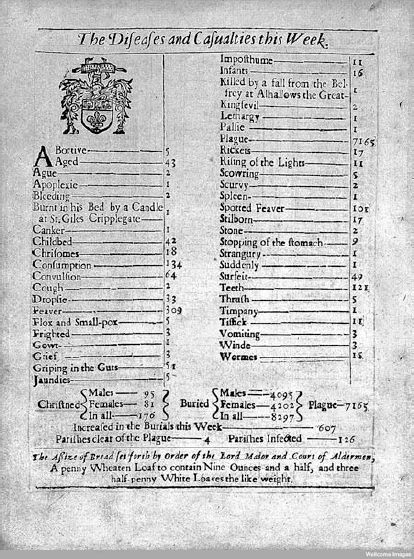 The Diseases and Casualties this Week.
Abortive 5
Aged 43
Ague 2
Apoplexie 1
Bleeding 2
Burnt in his Bed by a Candle
at St. Giles Cripplegate 1
Canker 1
Childbed 42
Chrisomes 18
Consumption 134
Convulsion 64
Cough 2
Dropsie 33
Feaver 309
Flox and Small-pox 5
Frighted 3
Gowt 1
Grief 3
Griping in the Guts 51
Jaundies 5
Imposthume 11
Infants 16
Killed by a fall from the Bel-
frey at Alhallows the Great 1
Kingsevil 2
Lethargy 1
Palsie 1
Plague 7165
Rickets 17
Rising of the Lights 11
Scowring 5
Scurvy 2
Spleen 1
Spotted Feaver 101
Stilborn 17
Stone 2
Stopping of the stomach 9
Strangury 1
Suddenly 1
Surfeit 49
Teeth 121
Thrush 5
Timpany 1
Tissick 11
Vomiting 3
Winde 3
Wormes 15
Christned Males 95 Females 81 In all 176 Buried Males 4095 Females 4202 In all 8297 Plague 7165
Increased in the Burials this Week 607
Parishes clear of the Plague 4 Parishes Infected 126
The Assize of Bread set forth by Order of the Lord Maior and Court of Aldermen,
A penny Wheaten Loaf to contain Nine Ounces and a half, and three
half-penny White Loaves the like weight.
Wellcome Images